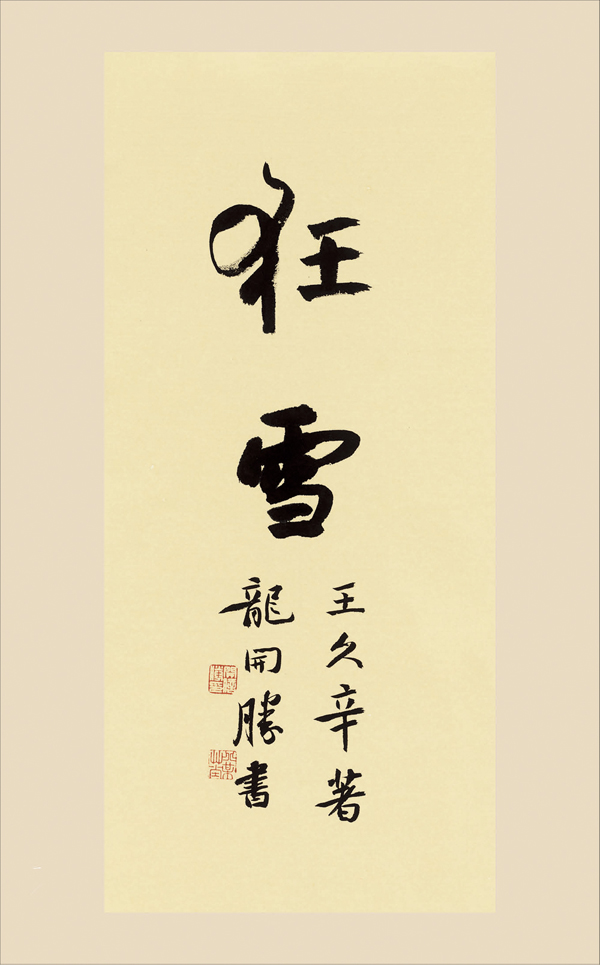 狂雪
王久辛著
龍開勝書